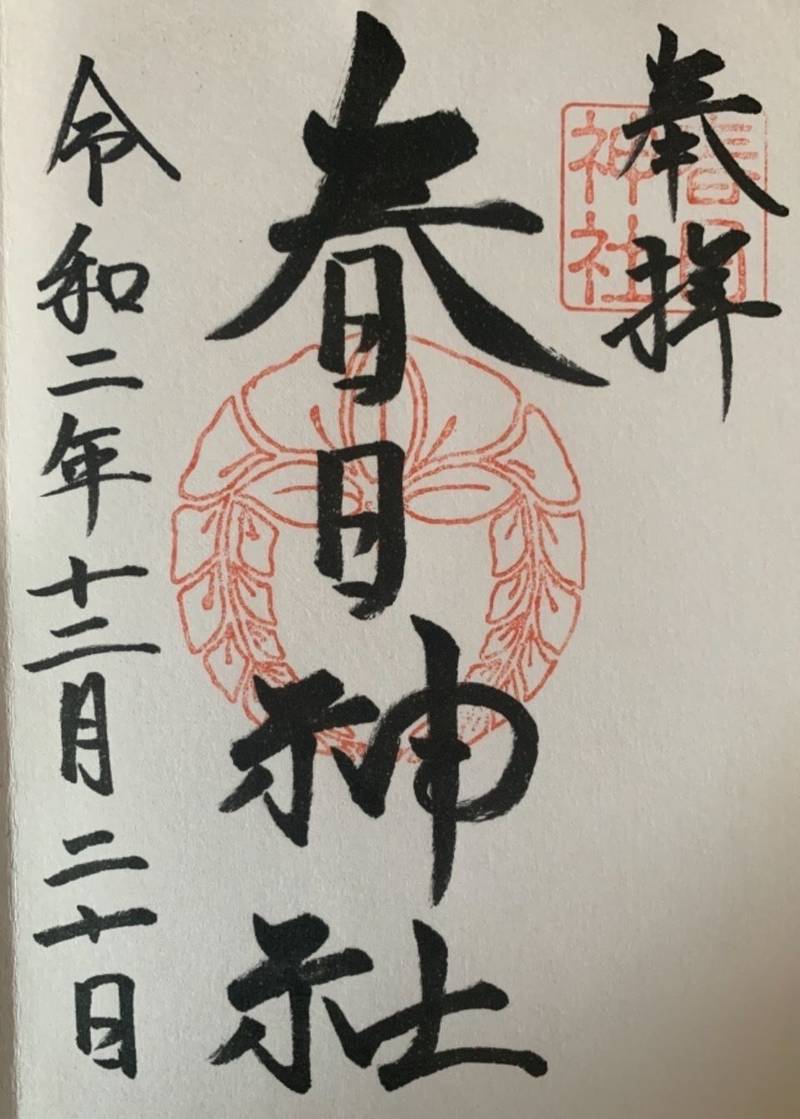 奉拝
春日神社
春日神社
令和二年十二月二十日